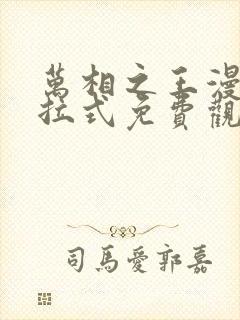 萬相之王漫
拉式免費觀
司馬愛郭嘉